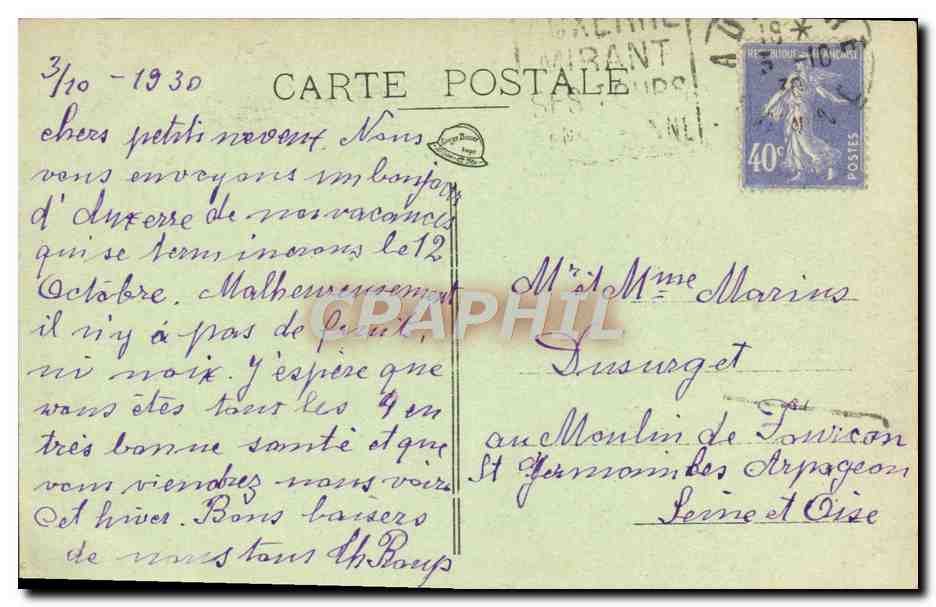 3/10 - 1930
CARTE POSTALE
chers petits neveux. Nous
vous envoyons un bonjour
d'Auxerre de nos vacances
qui se termineront le 12
Octobre. Malheureusement
il n'y a pas de fruit,
ni noix. J'espère que
vous êtes tous les 4 en
très bonne santé et que
vous viendrez nous voir
cet hiver. Bons baisers
de nous tous
AUXERRE
MIRANT
SES TOURS
DANS L'YONNE
19 *
3 - 10
30
REPUBLIQUE FRANÇAISE
40c
POSTES
Mr et Mme Marius
Dusurget
au Moulin de
St Germain les Arpageon
Seine et Oise
CPAPHIL